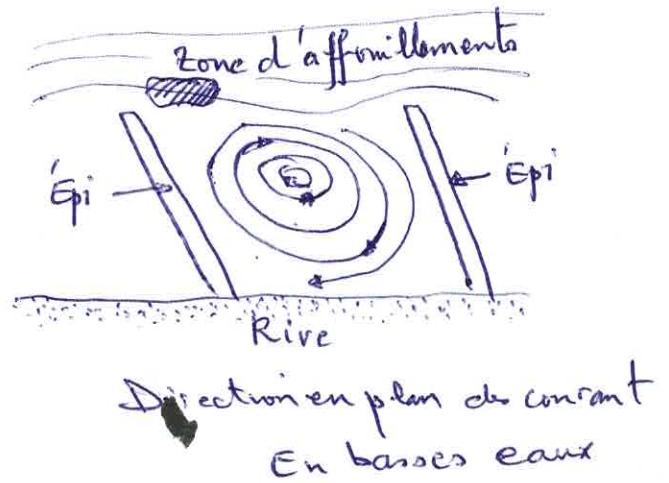 Zone d'affouillements
Épi
Épi
Rive
Direction en plan des courant
En basses eaux